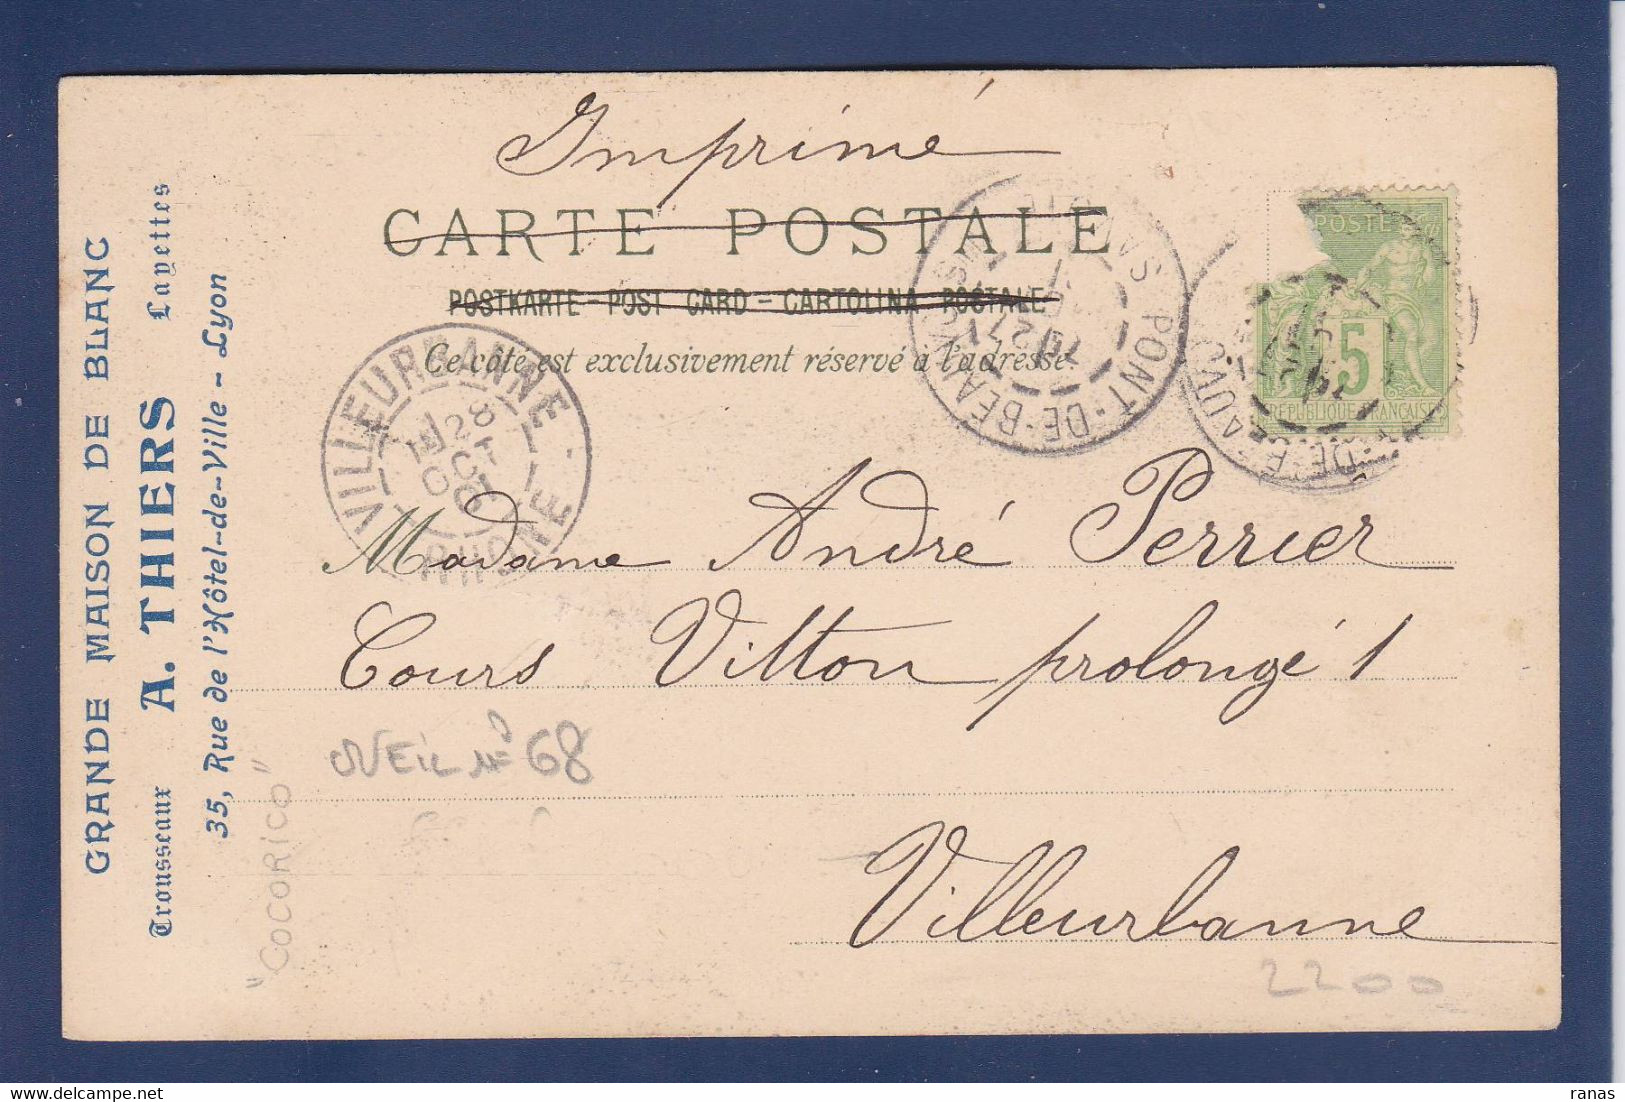 Imprimé
CARTE POSTALE
POSTKARTE - POST CARD - CARTOLINA POSTALE
Ce côté est exclusivement réservé à l'adresse.
GRANDE MAISON DE BLANC
Trousseaux A. THIERS Layettes
35, Rue de l'Hôtel-de-Ville - Lyon
POSTE
5
RÉPUBLIQUE FRANÇAISE
PONT-DE-BEAUVOISIN
27
VILLEURBANNE
28
OCT
RHONE
DE-BEAUVO
Madame André Perrier
Cours Vitton prolongé 1
Villeurbanne
N° 68
"COCORICO"
2200
ranas